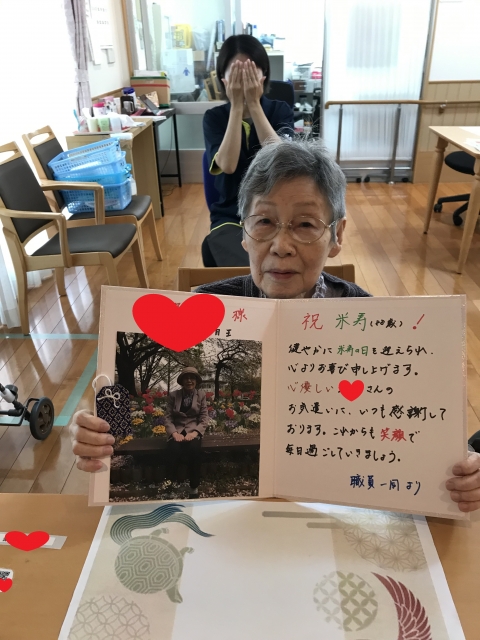 様
月 王
祝 米寿(88歳)!
健やかに米寿の日を迎えられ、
心よりお喜び申し上げます。
心優しい さんの
お気遣いに、いつも感謝して
おります。これからも笑顔で
毎日過ごしていきましょう。
職員一同より